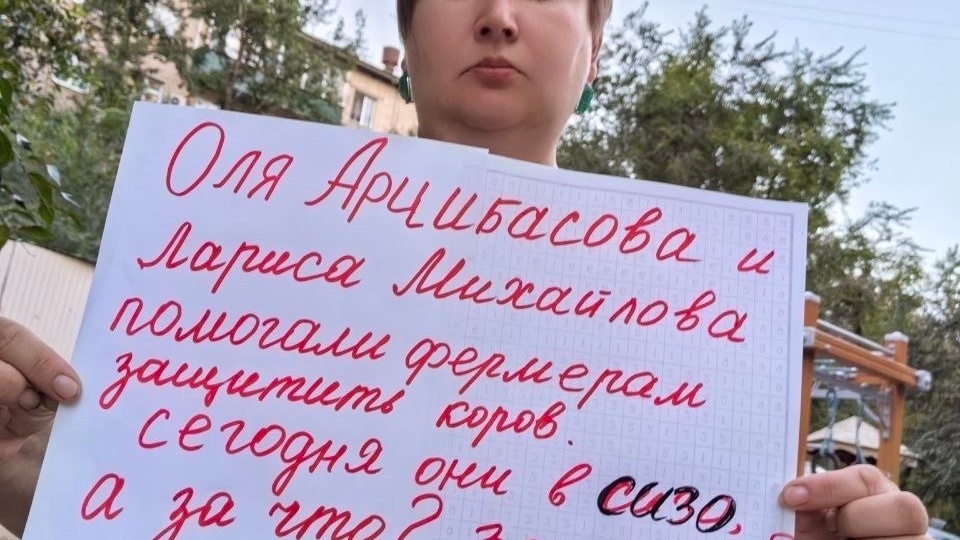 Оля Арцибасова и
Лариса Михайлова
помогали фермерам
защитить коров.
сегодня они в сизо,
а за что?